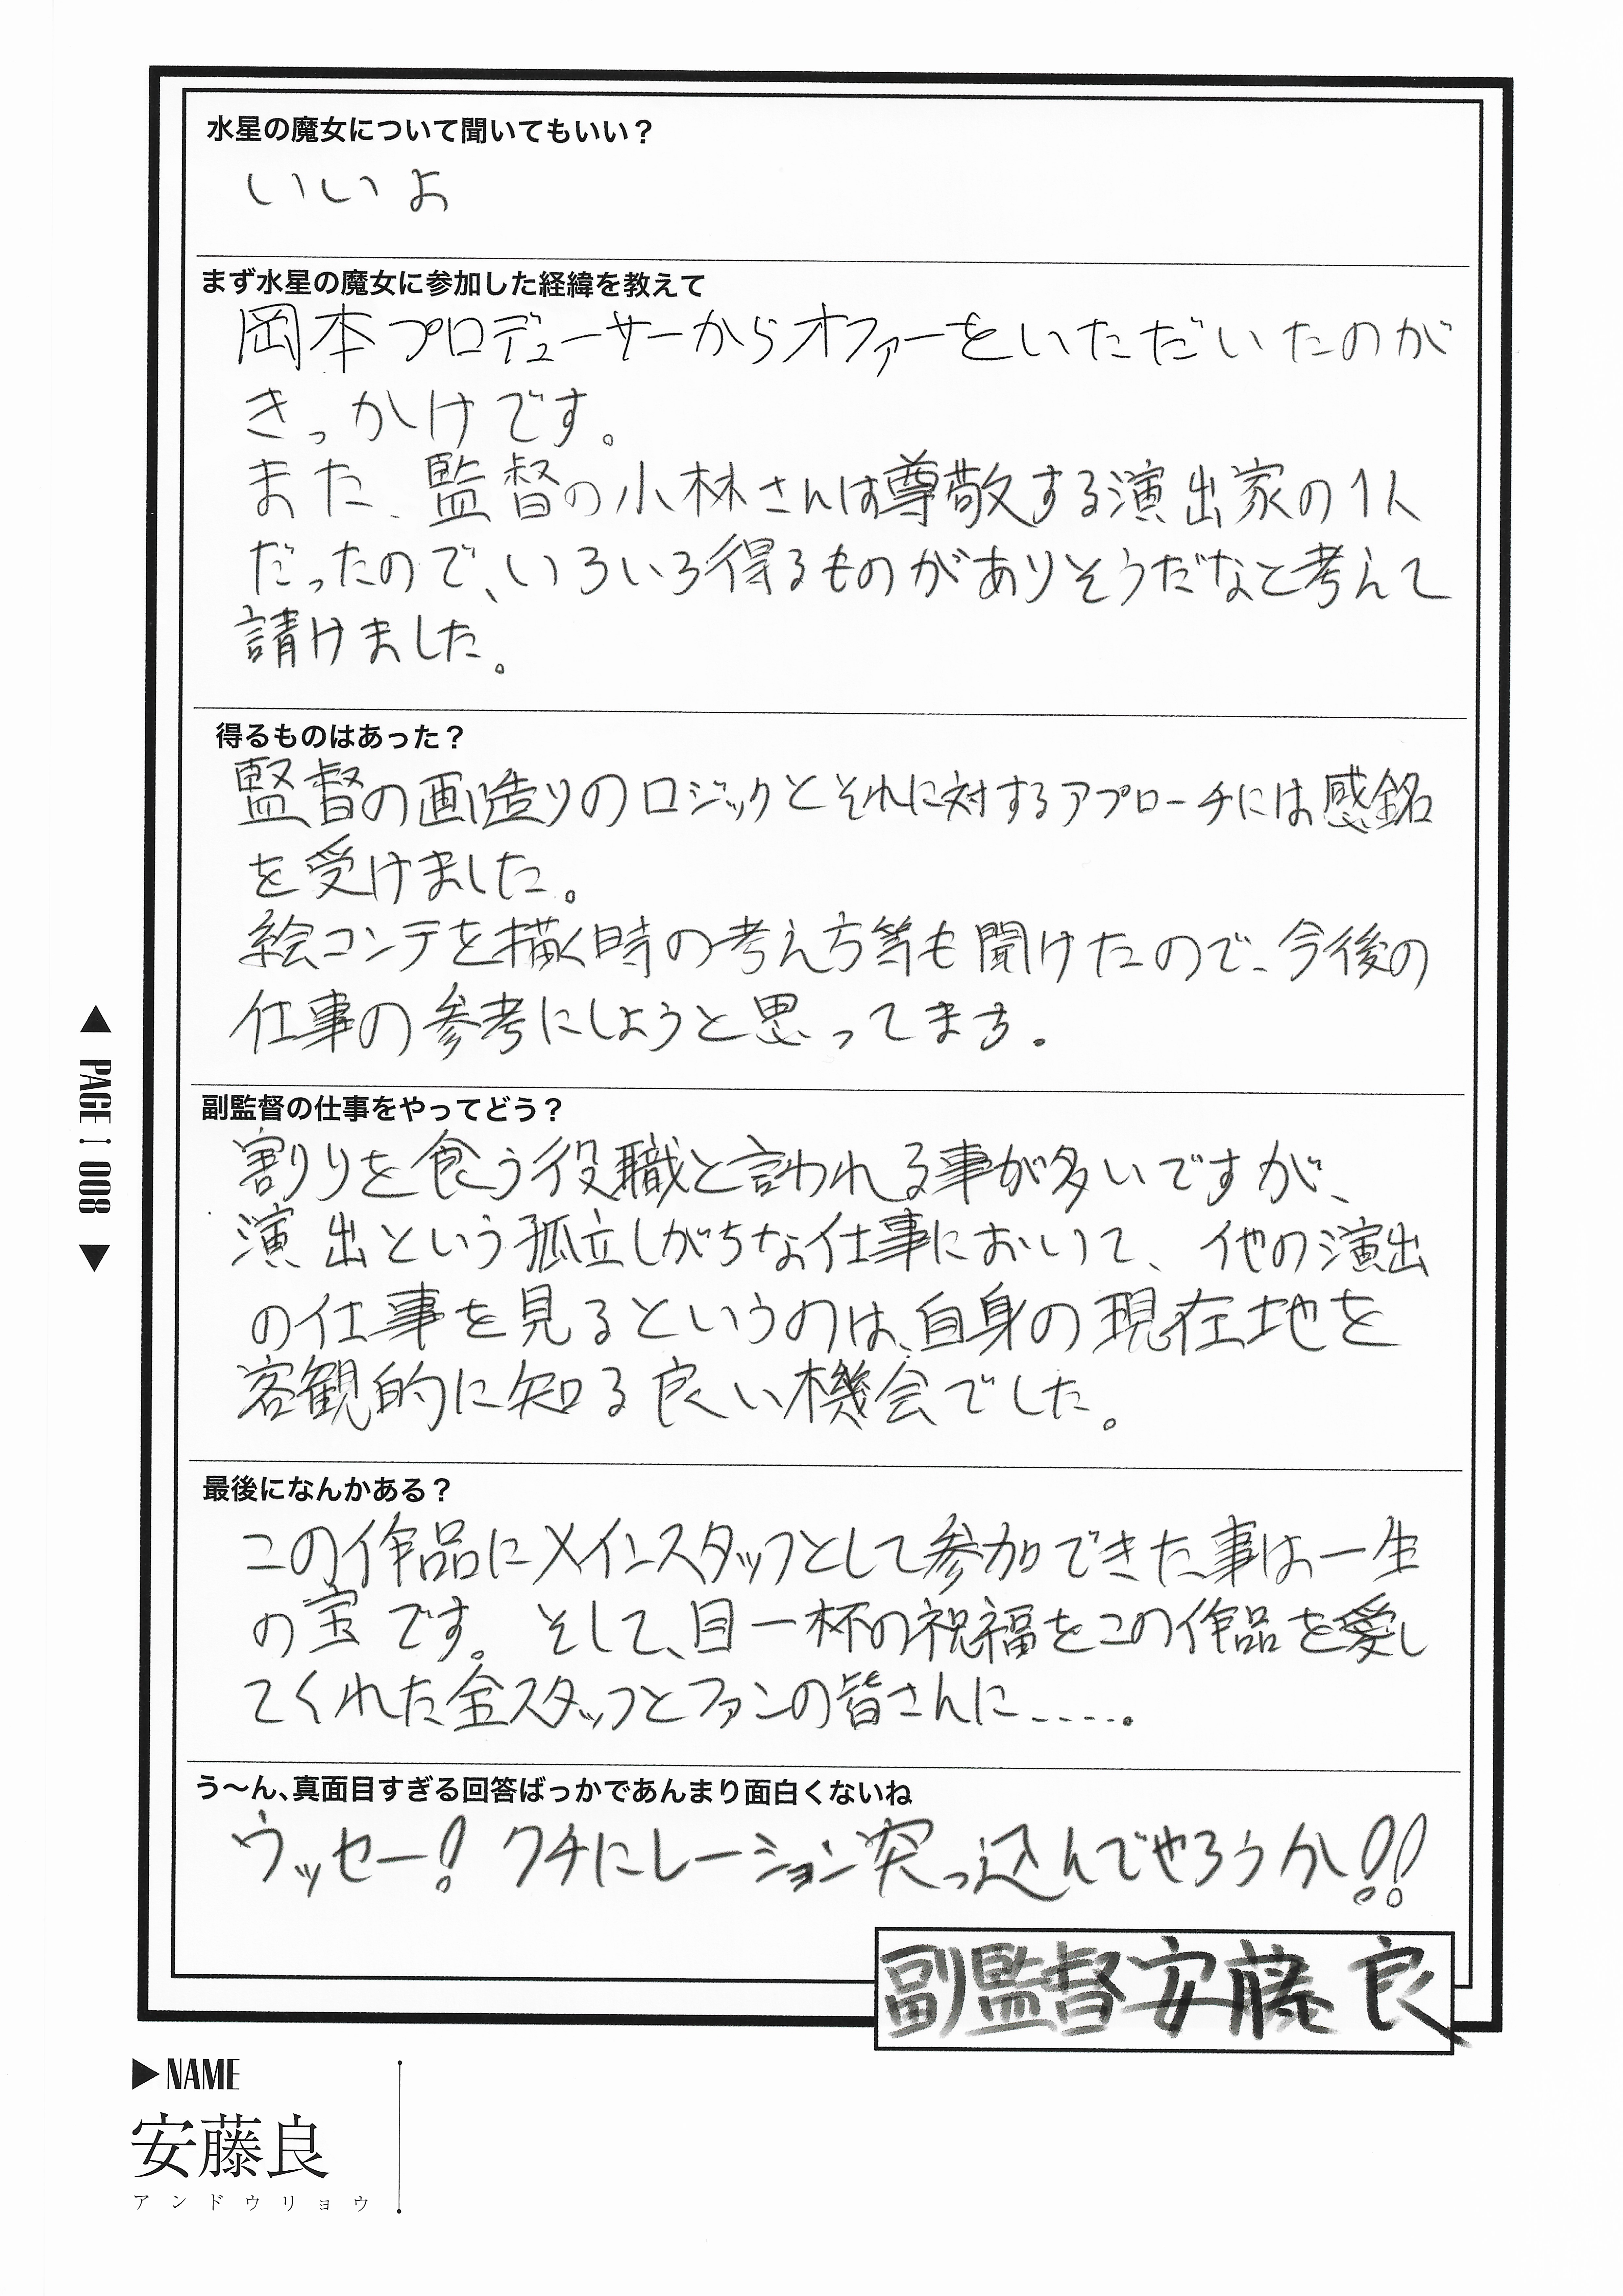 水星の魔女について聞いてもいい？
いいよ
まず水星の魔女に参加した経緯を教えて
岡本プロデューサーからオファーをいただいたのが
きっかけです。
また、監督の小林さんは尊敬する演出家の1人
だったので、いろいろ得るものがありそうだなと考えて
請けました。
得るものはあった？
監督の画造りのロジックとそれに対するアプローチには感銘
を受けました。
絵コンテを描く時の考え方等も聞けたので、今後の
仕事の参考にしようと思ってます。
副監督の仕事をやってどう？
割りを食う役職と言われる事が多いですが、
演出という孤立しがちな仕事において、他の演出
の仕事を見るというのは、自身の現在地を
客観的に知る良い機会でした。
最後になんかある？
この作品にメインスタッフとして参加できた事は一生
の宝です。そして、目一杯の祝福をこの作品を愛し
てくれた全スタッフとファンの皆さんに……。
う〜ん、真面目すぎる回答ばっかであんまり面白くないね
ウッセー！クチにレーション突っ込んでやろうか！！
副監督 安藤 良
▲ PAGE : 008 ▼
▶NAME
安藤良
アンドウリョウ